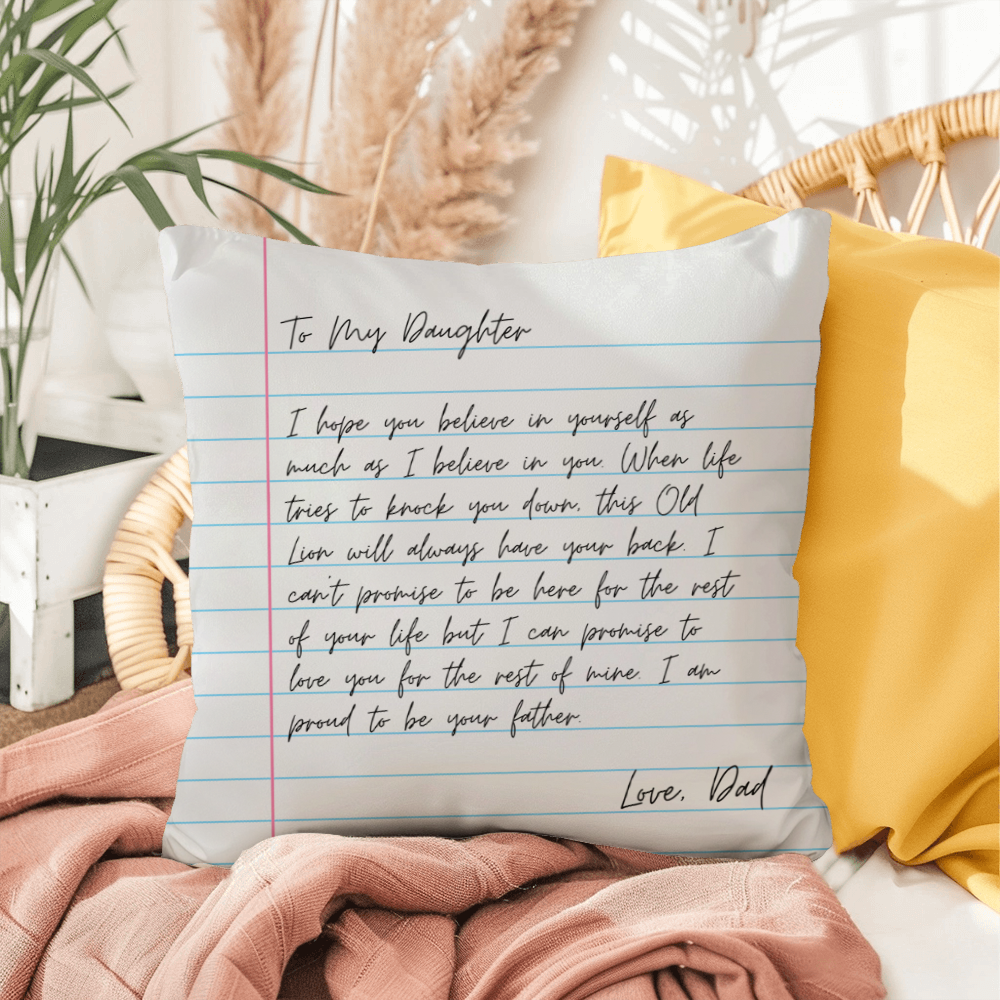 To My Daughter
I hope you believe in yourself as
much as I believe in you. When life
tries to knock you down, this Old
Lion will always have your back. I
can't promise to be here for the rest
of your life but I can promise to
love you for the rest of mine. I am
proud to be your father.
Love, Dad